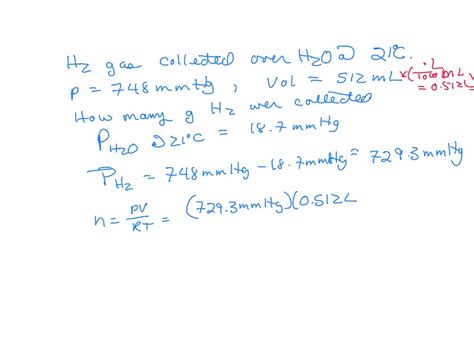 H2 gas collected over H2O @ 21°C.
P = 748 mmHg, Vol = 512 mL x (1L/1000 mL) = 0.512L
How many g H2 wer collected
PH2O @ 21°C = 18.7 mmHg
PH2 = 748 mmHg - 18.7 mmHg = 729.3 mmHg
n = PV/RT = (729.3 mmHg)(0.512L